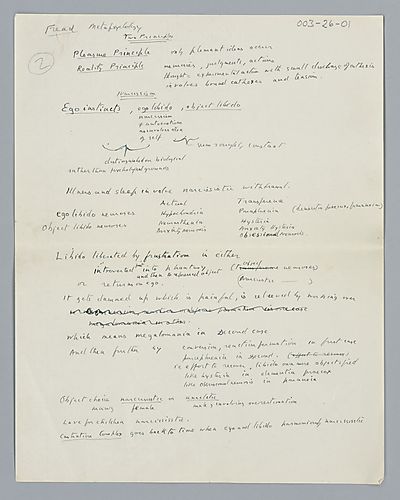 Freud Metapsychology 003-26-01
Two Principles
2
Pleasure Principle only pleasant ideas occur
Reality Principle memories, judgments, actions
thought = experimental action with small discharge of cathexis
involves bound cathexes and reason.
Narcissism
Ego instincts, ego libido, object libido
narcissism
of self
very roughly, constant
distinguished on biological
rather than psychological grounds
Illness and sleep involve narcissistic withdrawal.
Actual Transference
ego libido neuroses Hypochondria Paraphrenia (dementia praecox, paranoia)
Object libido neuroses Neurasthenia Hysteria
Anxiety neurosis Anxiety hysteria
Obsessional neurosis
Libido liberated by frustration is either
introverted into phantasy (object neuroses)
and then to object
or return on ego. (Narcissistic — )
It gets dammed up which is painful, is relieved by
which means megalomania in second case
And then further by conversion, reaction formation in first case
paraphrenia in second.
ie effort to recover, libido once more object
like hysteria in dementia praecox
like obsessional neurosis in paranoia
Object choice narcissistic or anaclitic
female male involving overestimation
Love for children narcissistic.
Castration Complex goes back to time when ego and libido harmoniously narcissistic